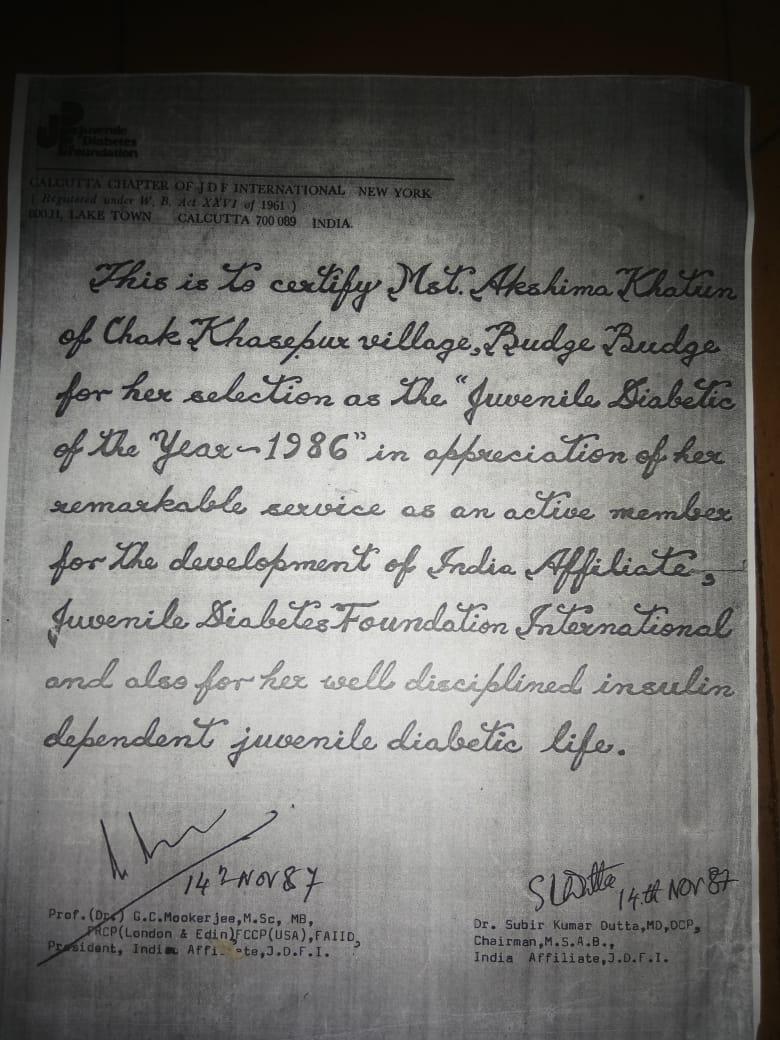 JDF Juvenile
Diabetes
Foundation
CALCUTTA CHAPTER OF JDF INTERNATIONAL NEW YORK
( Registered under W. B. Act XXVI of 1961 )
LAKE TOWN CALCUTTA 700 089 INDIA.
This is to certify Mst. Akshima Khatun
of Chak Khasepur village, Budge Budge
for her selection as the "Juvenile Diabetic
of the Year-1986" in appreciation of her
remarkable service as an active member
for the development of India Affiliate,
Juvenile Diabetes Foundation International
and also for her well disciplined insulin
dependent juvenile diabetic life.
14th NOV 87
SKDutta 14th NOV 87
Prof.(Dr.) G.C.Mookerjee,M.Sc, MB,
FRCP(London & Edin)FCCP(USA),FAIID,
President, India Affiliate,J.D.F.I.
Dr. Subir Kumar Dutta,MD,DCP,
Chairman,M.S.A.B.,
India Affiliate,J.D.F.I.